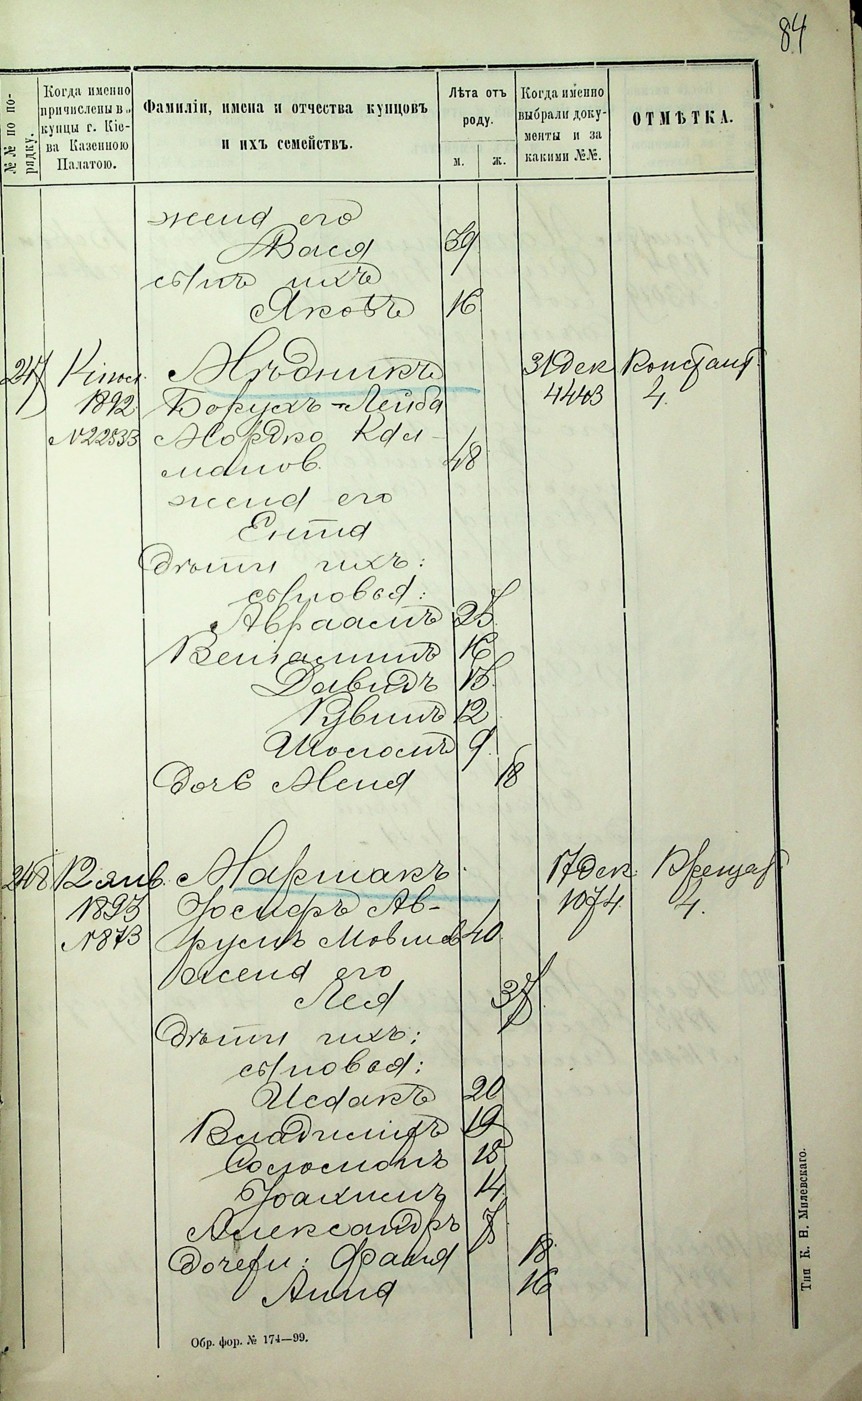 84
№№ по по-
рядку.
Когда именно
причислены в
купцы г. Кіе-
ва Казенною
Палатою.
Фамиліи, имена и отчества купцовъ
и ихъ семействъ.
Лѣта отъ
роду.
м. ж.
Когда именно
выбрали доку-
менты и за
какими №№.
ОТМѢТКА.
жена его
Вася 39
сынъ ихъ
Яковъ 16
247 Мѣдникъ 31 дек
1892 Борухъ-Лейба 4443 4.
№22533 Мордко Кал-
манов. 48
жена его
Ента
Дѣти ихъ:
сыновья:
Авраамъ 25
Веніаминъ 16
Давидъ 15
Рувинъ 12
Шоломъ 9
Дочь Меня 18
248 12 янв. Маршакъ 17 дек. Крещат
1893 Іосифъ Ав- 1074 4.
№873 румъ Мовшев 40
жена его
Лея 37
Дѣти ихъ:
сыновья:
Исаакъ 20
Владиміръ 19
Соломонъ 18
Іоахимъ 14
Александръ 7
Дочери: Фаня 18
Анна 16
Обр. фор. № 174—99.
Тип К. Н. Милевскаго.